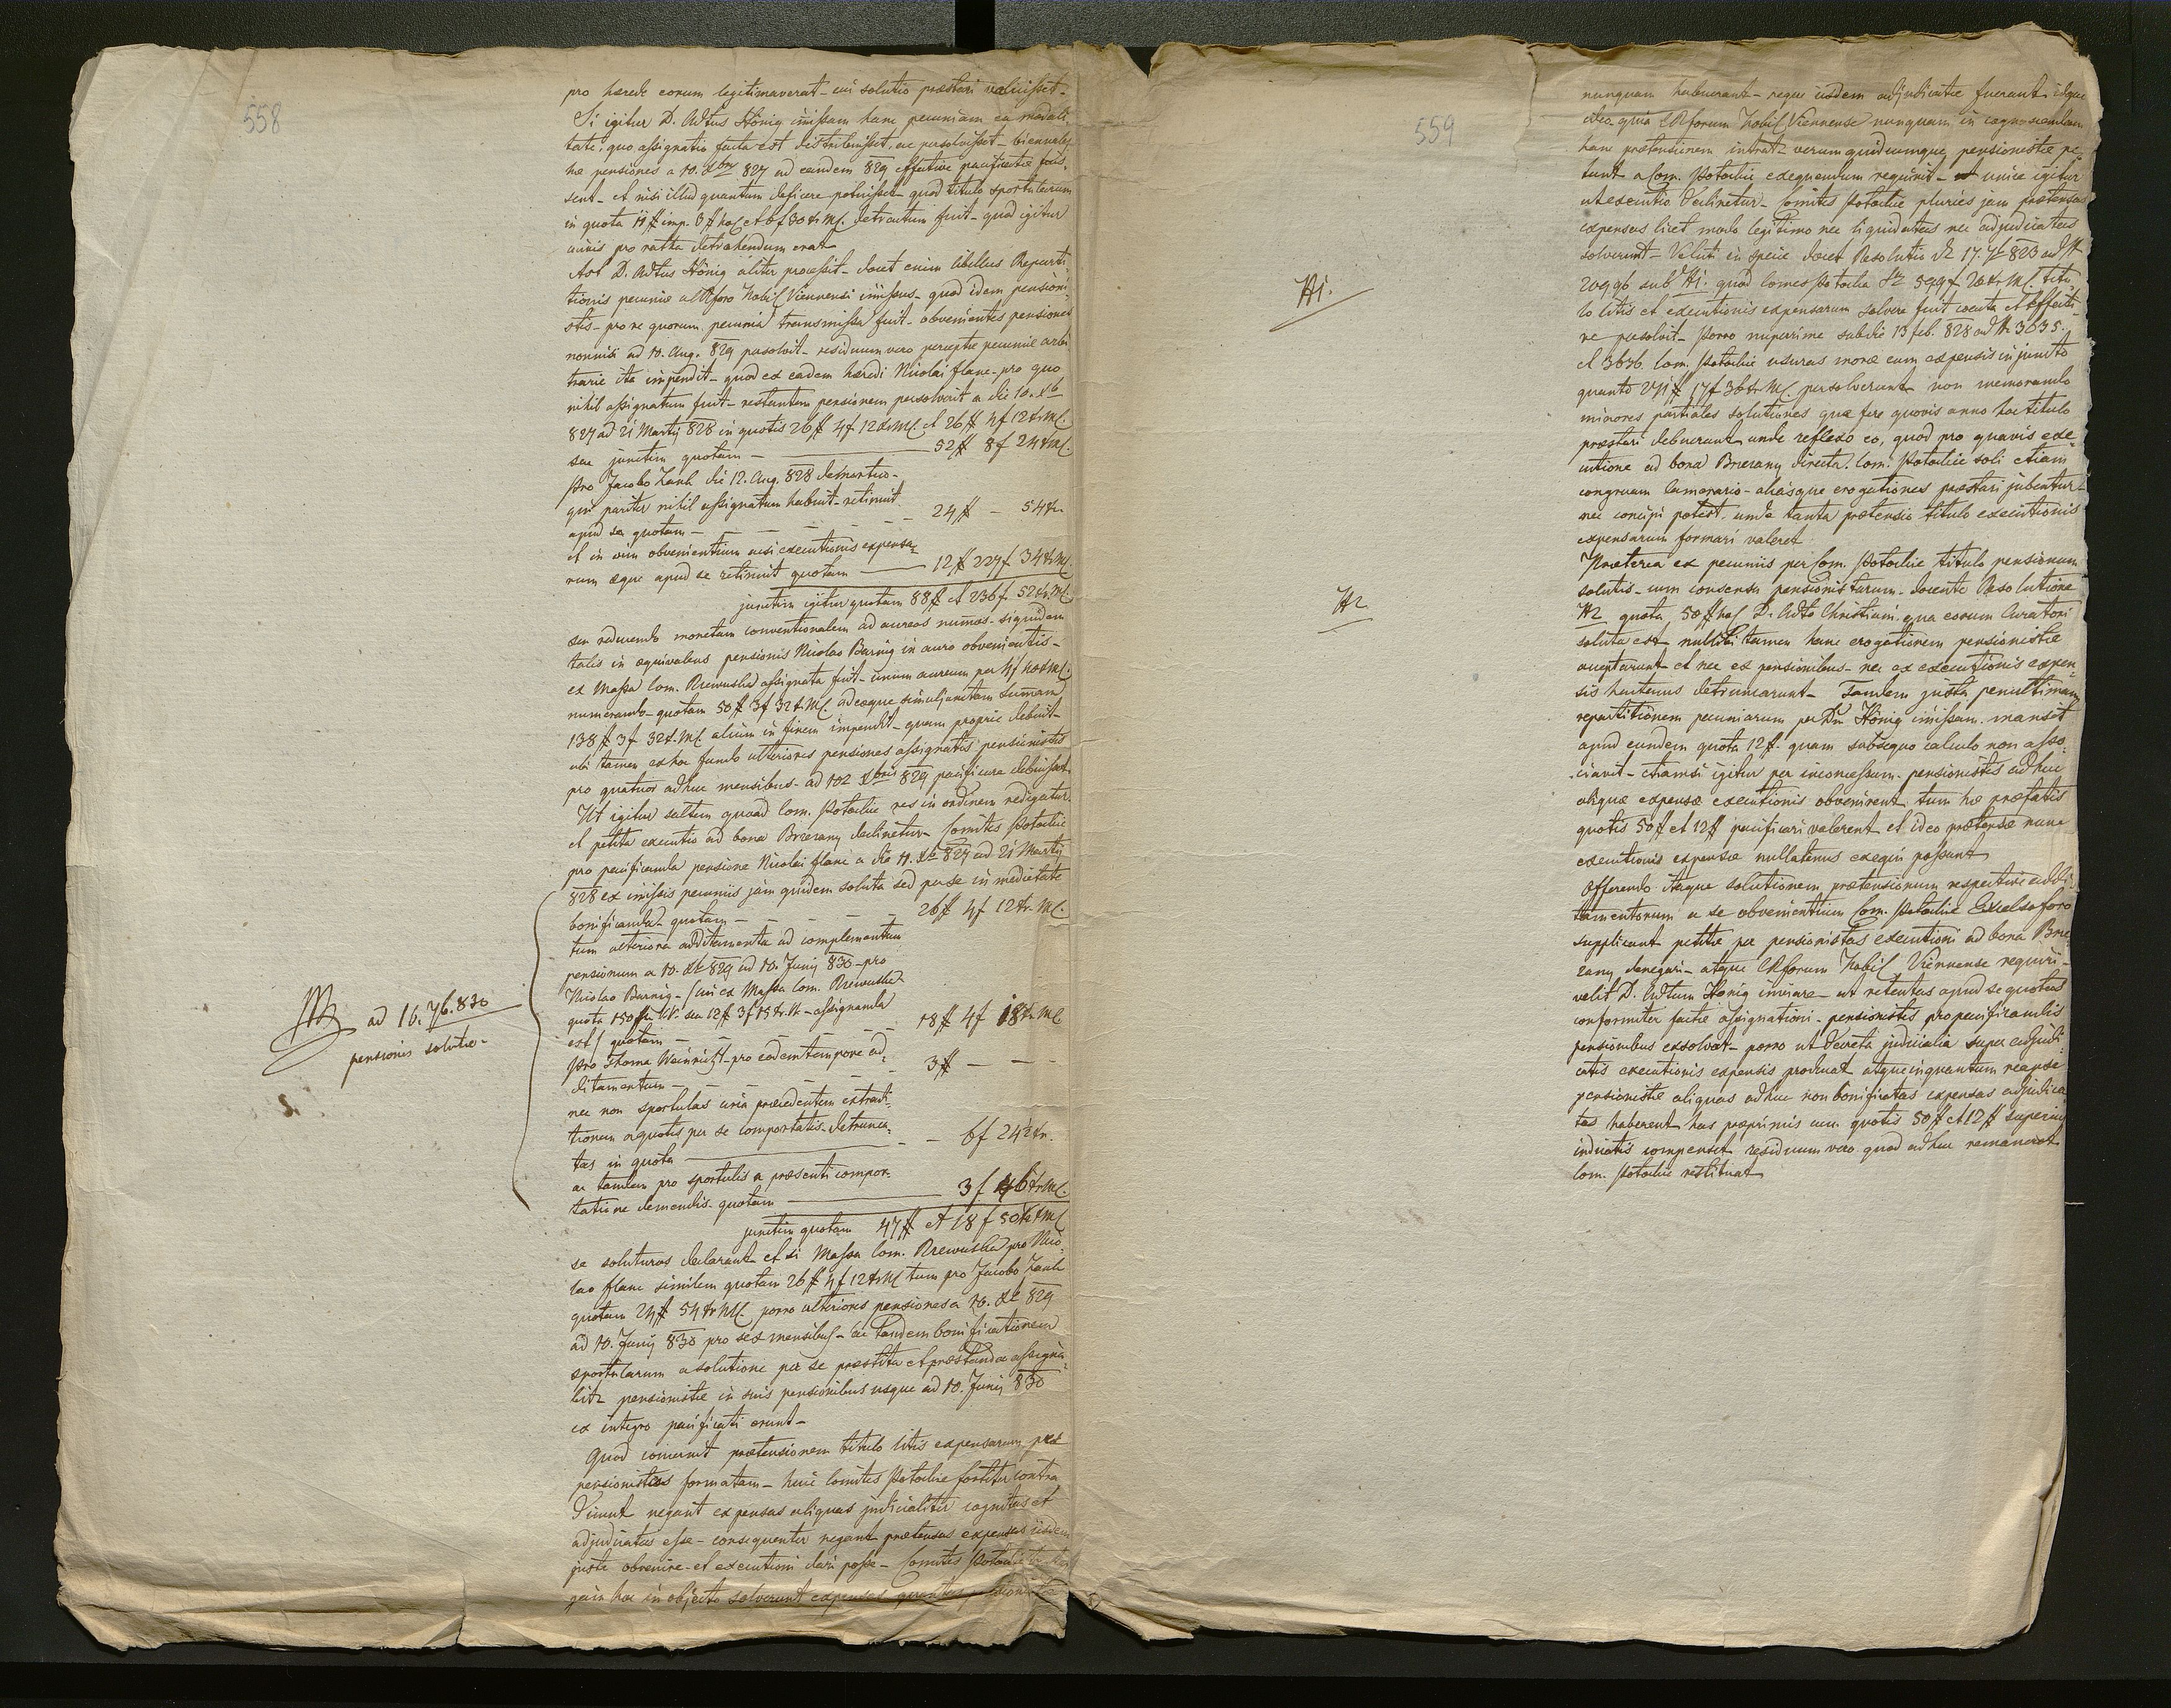 558
pro hærede eorum legitimaverat – cui solutio præstari valuisset –
Si igitur D. Adtus Hönig imissam hanc pecuniam ea modali
tate, quo assignatio facta est distribuisset, ac persolvisset – biennales
hæ pensiones a 10. Xbr 827 ad eandem 829 effective pacificatæ fuis
sent – et nisi illud quantum deficere potuisset – quod titulo sportularum
in quota 11 # imp. 3 # hol et 6 f 30 xr M.C. detractum fuit – quod igitur
universis pro ratha detrahendum erat
Ast D. Adtus Hönig aliter processit – docet enim libellus Reparti
tionis pecuniæ a CR foro Nobil Viennensi imissus – quod idem pensioni
stis – pro re quorum pecunia transmissa fuit – obvenientes pensiones
nonnisi ad 10. Aug. 829 persolvit – residuum vero perceptæ pecuniæ arbi
trarie ita impendit – quod ex eadem hæredi Nicolai flanc – pro quo
nihil assignatum fuit – restantem pensionem persolverit a die 10. Xb
827 ad 21 Martij 828 in quotis 26 # 4 f 12 xr M.C. et 26 # 4 f 12 xr M.C.
seu junctim quotam – 52 # 8 f 24 xr M.C.
Pro Jacobo Zank die 12. Aug. 828 demortuo –
qui pariter nihil assignatum habuit – retinuit
apud se quotam – 24 # – 54 xr
et in vim obvenientium nisi executionis expensa
rum æque apud se retinuit quotam 12 # 227 f 34 xr M.C.
junctim igitur quotam 88 # et 236 f. 52 xr. M.C.
seu reducendo monetam conventionalem ad aureos numos – siquidem
talis in æquivalens pensionis Nicolao Barnig in auro obvenientis –
ex Massa Com. Rzewuska assignata fuit – unum aureum per 4 f 40 xr M.C.
numerando – quotam 50 # 3 f 32 xr. M.C. adeoque simul junctam Summam
138 # 3 f 32 xr. M.C. alium in finem impendit – quam proprie debuit –
ubi tamen ex hoc fundo ulteriores pensiones assignatis pensionistis
pro quatuor adhuc mensibus – ad 10 Xbris 829 pacificare debuisset
Ut igitur saltem quoad Com. Potockie res in ordinem redigatur
et petita executio ad bona Brzezany declinetur – Comites Potockie
pro pacificanda pensione Nicolai flanc a die 11. Xbr 827 ad 21 Martij
828 ex imissis pecuniis jam quidem soluta sed per se in medietate
bonificanda – quotam – 26 # 4 f 12 xr. M.C.
tum ulteriora additamenta ad complementum
pensionum a 10. Xbr 829 ad 10. Junij 830 – pro
Nicolao Barnig – (cui ex Massa Com. Rzewuska
quota 150 seu 12 # 3 f 15 xr. – assignanda
est) quotam – 18 # 4 f 18 xr M.C.
ad 16. 7b. 830
pensionis solutio –
S.
Pro Thoma Weinricht – pro eodem tempore ad
ditamentum – 3 # – –
nec non sportulas unia præcedentum extradi
tionum a quotis per se comportatis – detrunca
tas in quota – 6 f 24 2/4 xr.
ac tandem pro sportulis a præsenti compor
tatione demendis – quotam 3 f 46 xr M.C.
junctim quotam 47 # et 18 f 50 2/4 xr M.C.
se soluturos declarant et si Massa Com. Rzewuska pro Nico
lao flanc similem quotam 26 # 4 f 12 xr M.C. tum pro Jacobo Zank
quotam 24 # 54 xr M.C. porro ulteriores pensiones a 10. Xbr 829
ad 10. Junij 830 pro sex mensibus – ac tandem bonificationem
sportularum a solutione per se præstita et præstanda assigna
bit pensionistæ in suis pensionibus usque ad 10. Junij 830
ex integro pacificati erunt –
Quod concernit prætensionem titulo litis expensarum per
pensionistas formatam – huic Comites Potockie fortiter contra
dicunt negant expensas aliquas judicialiter cognitas et
adjudicatas esse – consequenter negant prætensas expensas iisdem
juste obvenire – et executioni dari posse – Comites Potockie
jam hoc in objecto solverunt expensas
559
nunquam habuerunt – neque iisdem adjudicatæ fuerunt idque
ideo quia CR forum Nobil Viennense nunquam in cognoscendam
hanc prætensionem intrat – verum quidcumque pensionistæ pe
tunt a Com. Potockie exequendum requirit – et unice igitur
ut executio declinetur – Comites Potockie pluries jam prætensas
expensas licet modo legitimo nec liquidatas nec adjudicatas
solverunt – Veluti in specie docet Resolutio de 17. 7b 823 ad N
20996 sub H1. quod Comes Potockie 599 f 20 xr. M.C. titu
lo litis et executionis expensarum solvere fuit coacta et effecti
ve persolvit – porro nuperrime sub die 13 feb. 828 ad N. 3635.
et 3636. Com. Potockie usuras moræ cum expensis in juncto
quanto 271 # 17 f 36 xr M.C. persolverunt non memorando
minores partiales solutiones quæ fere quovis anno hoc titulo
præstari debuerunt unde reflexo eo, quod pro quavis exe
cutione ad bona Brzezany directa Com. Potockie soli etiam
congruum Camerario – aliasque erogationes præstari jubeantur –
nec concipi potest, unde tanta prætensio titulo executionis
expensarum formari valeret
Præterea ex pecuniis per Com. Potockie titulo pensionum
solutis – cum consensu pensionistarum – docente Resolutione
H2 quota 50 # hol D. Adto Christiani qua eorum Curatori
soluta est – nullibi tamen hanc erogationem pensionistæ
acceptarunt et nec ex pensionibus – nec ex executionis expen
sis hactenus detruncarunt – Tandem juxta penultimam
repartitionem pecuniarum per Dm Hönig imissam – mansit
apud eundem quota 12 # – quam subsequo calculo non asso
ciavit – etiamsi igitur per inconcessum – pensionistis adhuc
aliquæ expensæ executionis obvenirent, tum hæ præfatis
quotis 50 # et 12 # pacificari valerent et ideo prætensæ nunc
executionis expensæ nullatenus exequi possunt
Offerendo itaque solutionem prætensionum respective addi
tamentorum a se obvenientium Com. Potockie Excelso foro
supplicant petitæ per pensionistas executioni ad bona Brze
zany denegari – atque CR forum Nobil Viennense requiri –
velit D. Adtum Hönig inviare – ut retentas apud se quotas
conformiter factæ assignationi – pensionistis pro pacificandis
pensionibus exsolvat – porro ut Decreta judicialia super adjudi
catis executionis expensis producat atque in quantum reapse
pensionistæ aliquas adhuc non bonificatas expensas adjudica
tas haberent has præprimis cum quotis 50 # et 12 # superius
indicatis compenset residuum vero quod adhuc remaneret
Com. Potockie restituat
H1.
H2